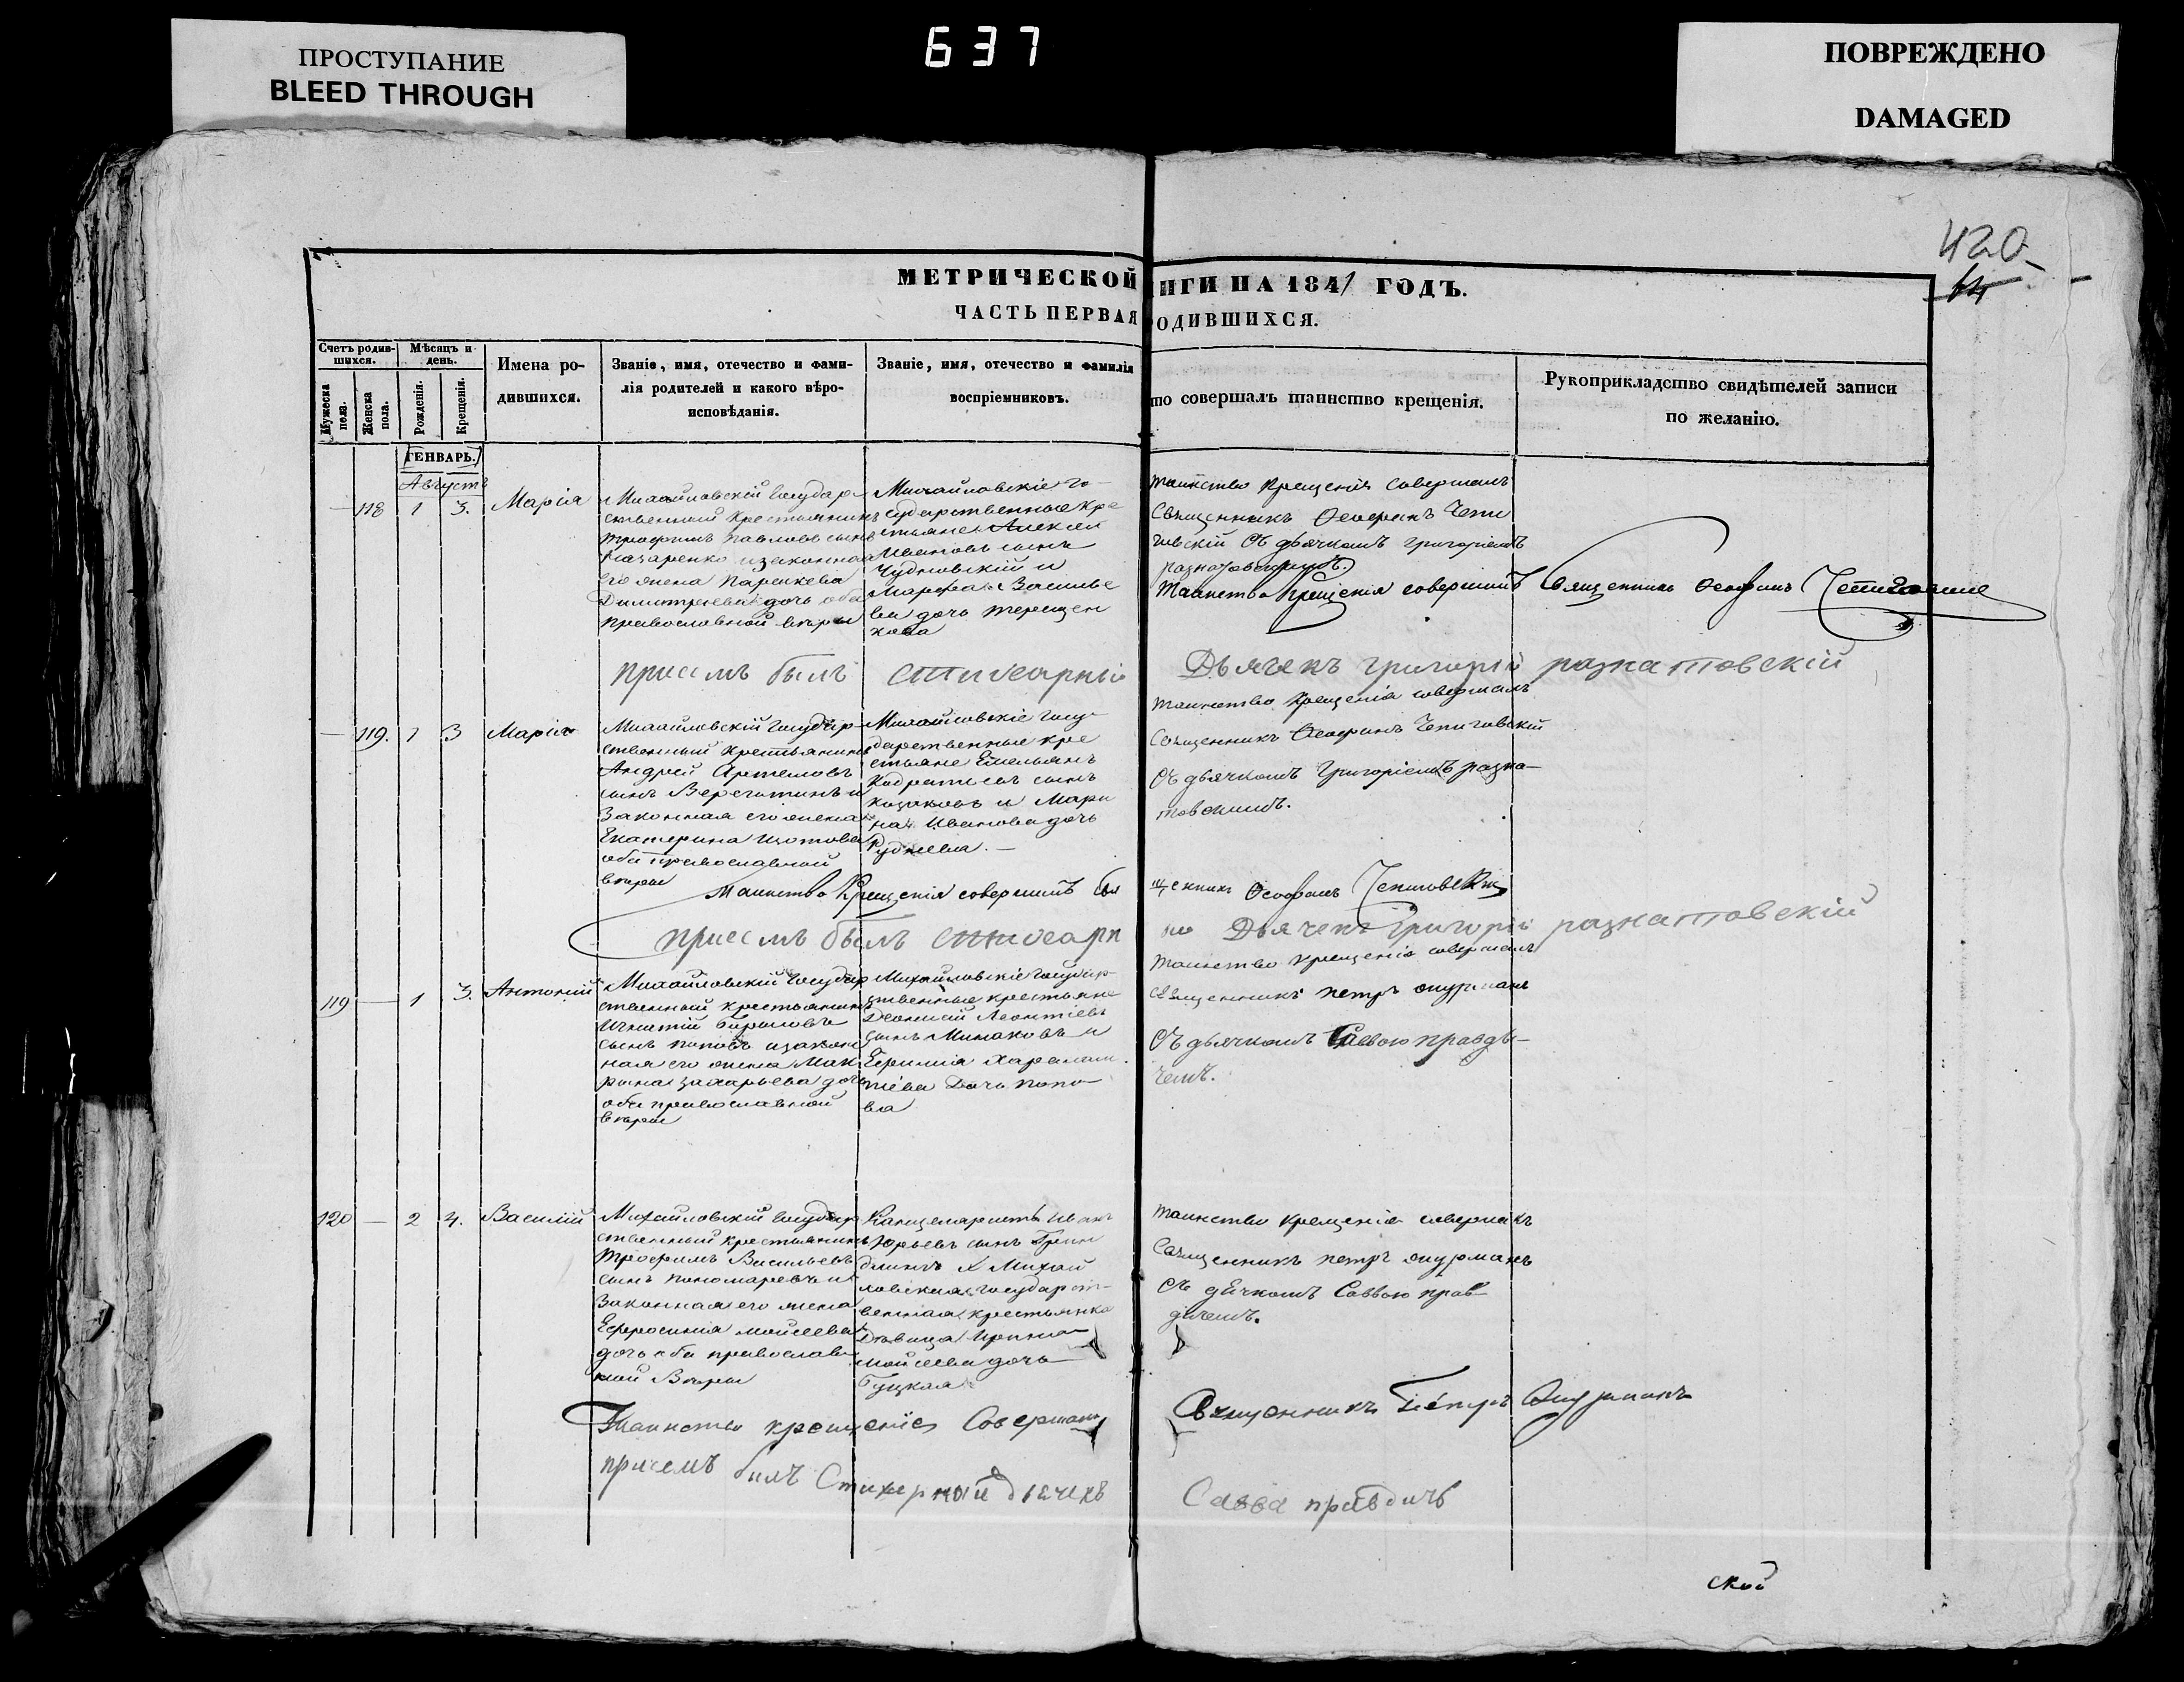 ПРОСТУПАНИЕ
BLEED THROUGH
637
ПОВРЕЖДЕНО
DAMAGED
420
64
МЕТРИЧЕСКОЙ ИГИ НА 1841 ГОДЪ.
ЧАСТЬ ПЕРВАЯ ОДИВШИХСЯ.
Счетъ родив-
шихся.
Мужеска
пола.
Женска
пола.
Мѣсяцъ и
день.
Рожденія.
Крещенія.
Имена ро-
дившихся.
Званіе, имя, отечество и фами-
лія родителей и какого вѣро-
исповѣданія.
Званіе, имя, отечество и фамилія
воспріемниковъ.
то совершалъ таинство крещенія.
Рукоприкладство свидѣтелей записи
по желанію.
ГЕНВАРЬ.
Августъ
118 1 3. Марія
Михайловскій государ-
ственный крестьянинъ
Трофимъ Павловъ сынъ
Назаренко и законная
его жена Параскева
Димитріева дочь оба
православной вѣры
Михайловскіе го-
сударственные кре
стьяне Алексей
Ивановъ сынъ
Чудновскій и
Марфа Василье
ва дочь Терещен
кова
таинство крещенія совершалъ
Священникъ Ѳеофанъ Чепи
говскій съ дьячкомъ Григоріемъ
разнатовскимъ.
Таинство Крещенія совершилъ Священникъ Ѳеофанъ Чепиговскій
присемъ былъ стихарный Дьячекъ григорій разнатовскій
119. 1 3 Марія
Михайловскій государ-
ственный крестьянинъ
Андрей Артемовъ
сынъ Веречитинъ и
Законная его жена
Екатерина Изотова
оба православной
вѣры
Михайловскіе госу-
дарственные кре
стьяне Емельянъ
Кодратьевъ сынъ
козаковъ и Мари
на Иванова дочь
Руднева. —
таинство крещенія совершалъ
Священникъ Ѳеофанъ Чепиговскій
Съ дьячкомъ Григоріемъ разна-
товскимъ.
Таинство Крещенія совершилъ Свя щенникъ Ѳеофанъ Чепиговскій
присемъ былъ стихарн Дьячекъ Григорій разнатовскій
119 1 3. Антоній
Михайловскій государ
ственный крестьянинъ
Игнатій
сынъ Поповъ и закон
ная его жена Мак
рина Захарьева дочь
оба православной
вѣры
Михайловскіе государ-
ственные крестьяне
Деонисій Леонтіевъ
сынъ Минаковъ и
Ефимія Харалам
піева Дочь Попо-
ва
таинство крещенія совершалъ
священникъ петръ
Съ дьячкомъ Саввою правди-
чемъ.
120 2 4. Василій
Михайловскій государ
ственный крестьянинъ
Трофимъ Васильевъ
сынъ пономаревъ и
Законная его жена
Ефросинія Мойсеева
дочь оба православ-
ной Вѣры
Канцеляристъ Иванъ
Юрьевъ сынъ
и Михай
ловская государст-
венная крестьянка
Дѣвица Ирина
Мойсеева дочь
Буцкая
таинство крещенія совершалъ
Священникъ петръ
съ дячкомъ Саввою прав-
дичемъ.
Таинство крещеніе Совершалъ Священникъ Петръ
причемъ былъ Стихарный дьячекъ Савва правдичъ
ской